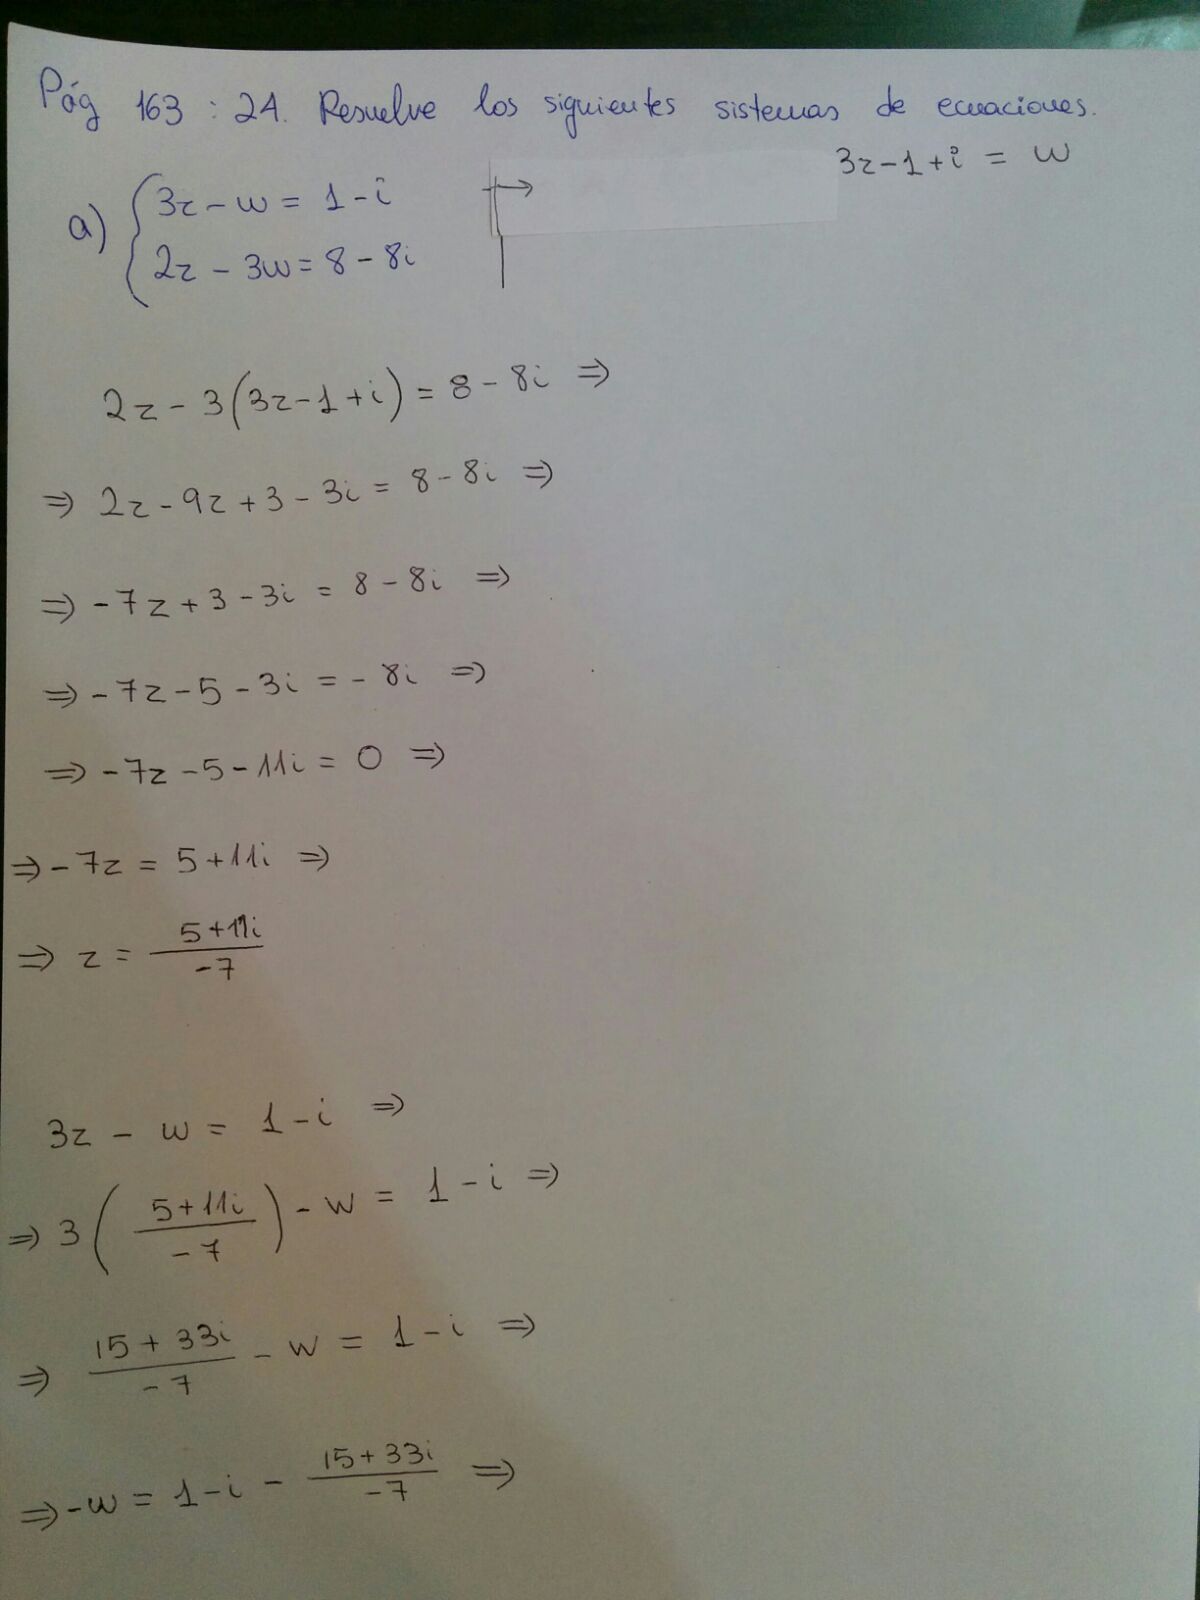 Pág 163 : 24. Resuelve los siguientes sistemas de ecuaciones.
3z-1+i = w
a) { 3z - w = 1 - i
2z - 3w = 8 - 8i
2z - 3(3z-1+i) = 8 - 8i ⇒
⇒ 2z - 9z + 3 - 3i = 8 - 8i ⇒
⇒ -7z + 3 - 3i = 8 - 8i ⇒
⇒ -7z - 5 - 3i = - 8i ⇒
⇒ -7z - 5 - 11i = 0 ⇒
⇒ -7z = 5+11i ⇒
⇒ z = (5+11i)/(-7)
3z - w = 1 - i ⇒
⇒ 3 ((5+11i)/(-7)) - w = 1 - i ⇒
⇒ (15 + 33i)/(-7) - w = 1 - i ⇒
⇒ -w = 1 - i - (15 + 33i)/(-7) ⇒